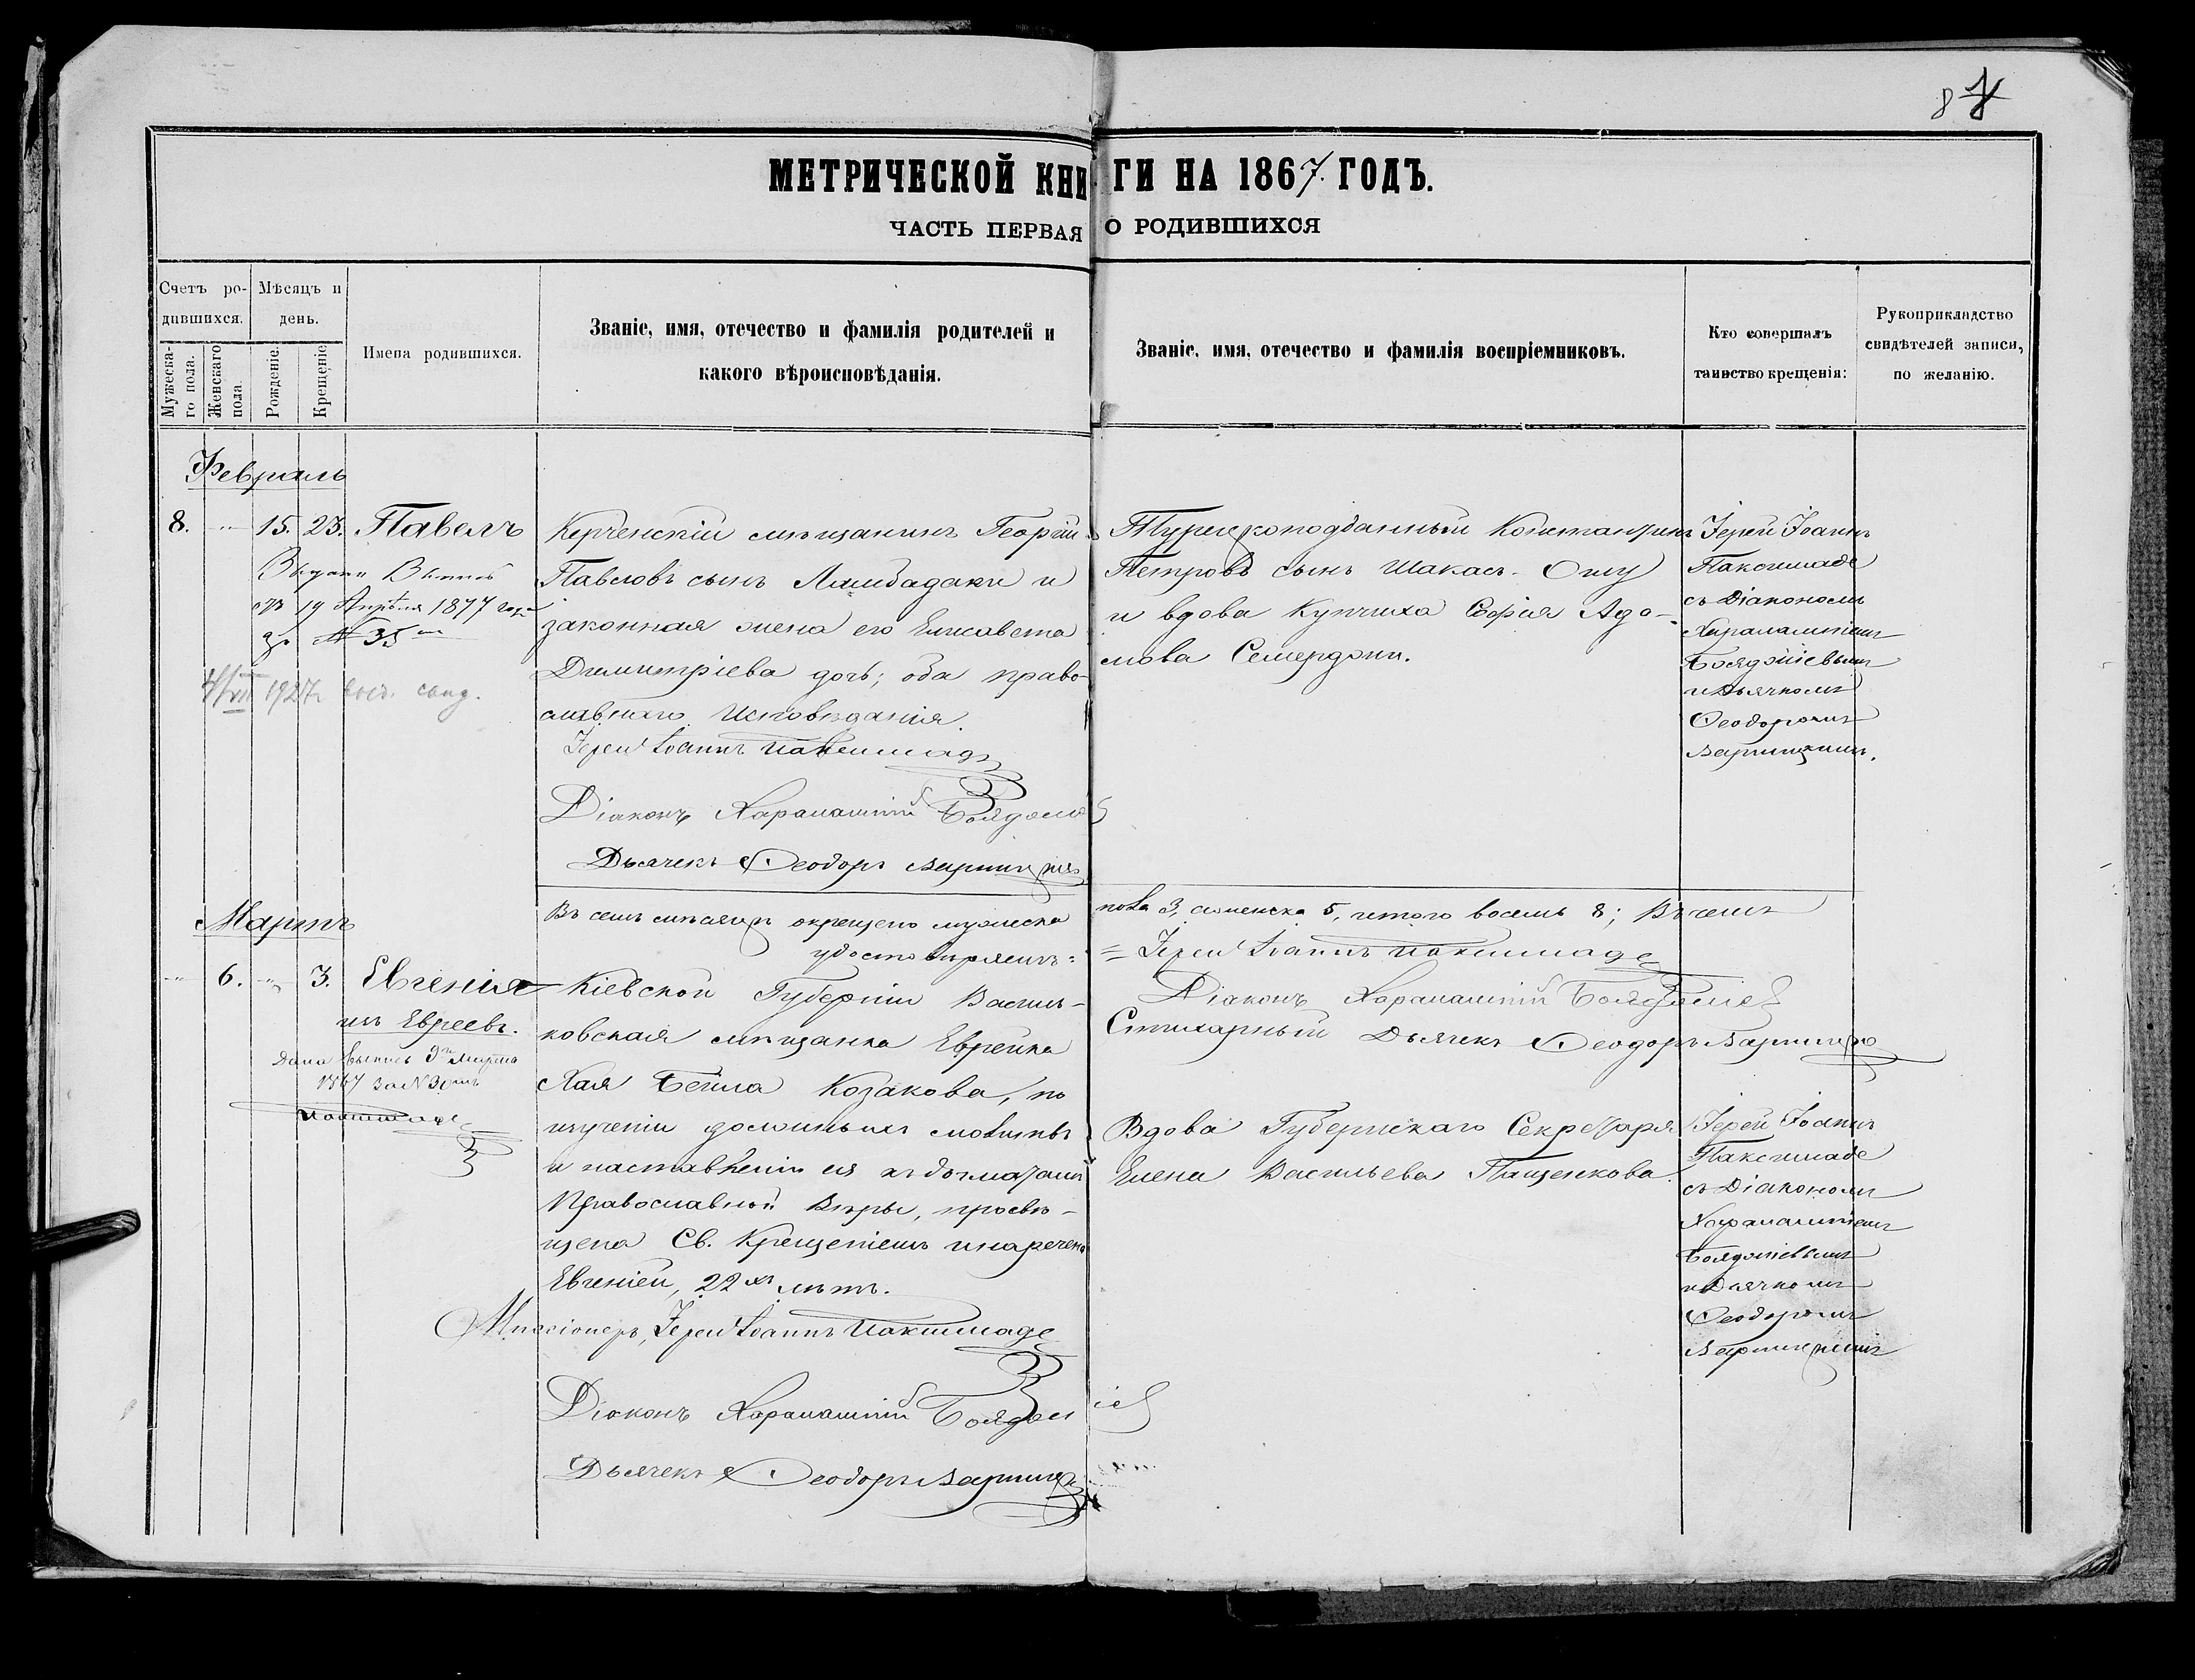 8 7
МЕТРИЧЕСКОЙ КНИГИ НА 1867. ГОДЪ.
ЧАСТЬ ПЕРВАЯ О РОДИВШИХСЯ
Счетъ ро-
дившихся.
Мужеска-
го пола.
Женскаго
пола.
Мѣсяцъ и
день.
Рожденіе.
Крещеніе.
Имена родившихся.
Званіе, имя, отечество и фамилія родителей и
какого вѣроисповѣданія.
Званіе, имя, отечество и фамилія воспріемниковъ.
Кто совершалъ
таинство крещенія:
Рукоприкладство
свидѣтелей записи,
по желанію.
Февраль
8. 15. 23. Павелъ
19 Апрѣля 1877 года
за № 35
1927
Керченскій мѣщанинъ Георгій
Павловъ сынъ Ламбадаки и
законная жена его Елисавета
Димитріева дочь; оба право-
славнаго исповѣданія.
Іерей Іоаннъ Паксимаде
Діаконъ Харалампій
Дьячекъ Ѳеодоръ
Турецкоподданный Константинъ
Петровъ сынъ Шакасъ-Оглу
и вдова Купчиха Софія Адо-
мова
Іерей Іоаннъ
Паксимаде
съ Діакономъ
Харалампіемъ
и Дьячкомъ
Ѳеодоромъ
Въ семъ мѣсяцѣ окрещено мужеска
пола 3, а женска 5, итого восемь 8; Въ чемъ
удостовѣряемъ:
= Іерей Іоаннъ Паксимаде
Діаконъ Харалампій
Стихарный Дьячекъ Ѳеодоръ
Мартъ
6. 3. Евгенія
изъ Евреевъ.
Дана выпись 9го Марта
1867 за № 30мъ
Паксимаде
Кіевской Губерніи Василь-
ковская мѣщанка Еврейка
Хая Бейла Козакова, по
изученіи должныхъ молитвъ
и наставленіи ея въ догматахъ
Православной Вѣры, просвѣ-
щена Св. Крещеніемъ и наречена
Евгеніей, 22хъ лѣтъ.
Миссіонеръ, Іерей Іоаннъ Паксимаде
Діаконъ Харалампій
Дьячекъ Ѳеодоръ
Вдова Губернскаго Секретаря
Елена Васильева Пащенкова.
Іерей Іоаннъ
Паксимаде
съ Діакономъ
Харалампіемъ
и Дьячкомъ
Ѳеодоромъ